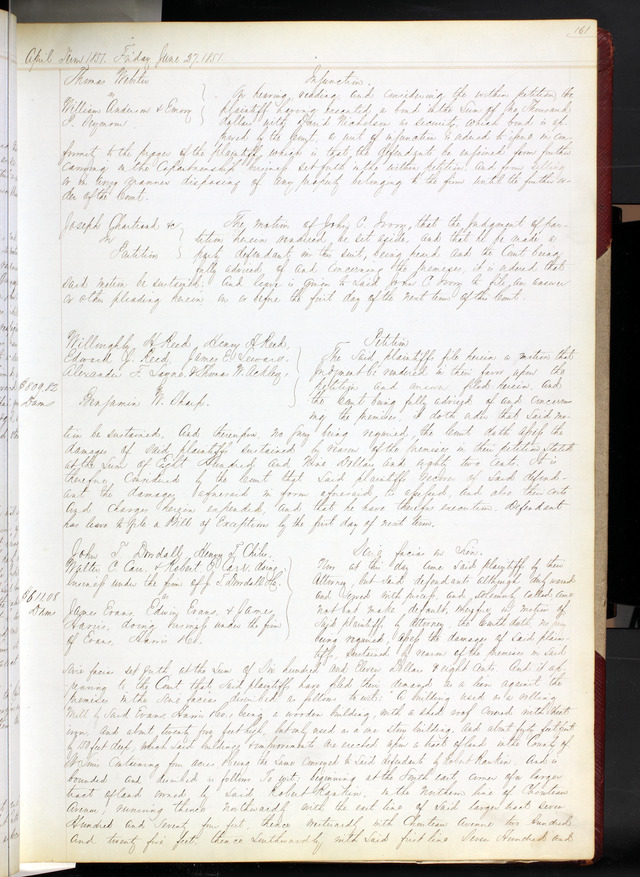 161
April Term 1851. Friday June 27. 1851.
Thomas Webster Injunction.
vs On hearing, reading and considering the within petition, the
William Anderson & Emory plaintiff having executed a bond in the Sum of Two Thousand
P. dollars with David Nicholson as security, which bond is ap-
proved by the Court, a writ of injunction is ordered to issue in con-
formity to the prayer of the plaintiff, which is that the defendants be enjoined from further
carrying on the Copartnership business set forth in the within petition, and from selling
or in any manner disposing of any property belonging to the firm until the further or-
der of the Court.
Joseph Chartrand &c The motion of John C. Ivory, that the Judgment of par-
vs tition herein rendered, be set aside, and that he be made a
Petition party defendant in this suit, being heard and the Court being
fully advised of and concerning the premises, it is ordered that
said motion be sustained. And leave is given to said John C Ivory to file, an answer
or other pleading herein on or before the first day of the next term of this Court.
Willoughby H Reed, Henry H Reed, Petition
Edward D. Reed, James E Seward, The Said, plaintiffs file herein a motion that
Alexander F. Sayre, & Thomas W. Ackley, Judgment be rendered in their favor upon the
$809.82 vs petition and answer filed herein, and
Dams Benjamin W. Sharp. the Court being fully advised of and concern-
ing the premises, it doth order that Said mo-
tion be sustained. And thereupon no Jury being required, the Court doth assess the
damages of Said plaintiffs sustained by reason of the premises in their petition stated
at the Sum of Eight Hundred and Nine Dollars and eighty two cents. It is
therefore, Considered by the Court that Said plaintiffs recover of Said defend-
ant the damages aforesaid in form aforesaid, assessed, and also their costs
and charges herein expended, and that he have therefor execution. Defendant
has leave to file a Bill of Exceptions by the first day of next term.
John T. Dowdall, Henry G. Chiles, Scire facias on Lien.
Walter C. Carr, & Robert E Carr, doing Now at this day come Said plaintiffs by their
business under the firm of J T. Dowdall & Co. Attorney, but Said defendants although duly warned
$611.08 vs and served with process, and solemnly called, come
Dams James Evans, Edwin Evans, & James not but make default, wherefore, on motion of
Harris, doing business under the firm Said plaintiffs by Attorney, the Court doth, no jury
of Evans Harris & Co. being required, assess the damages of Said plain-
tiffs, sustained by reason of the premises in said
Scire facias set forth at the Sum of Six hundred and Eleven Dollars & eight cents. And it ap-
pearing to the Court that Said plaintiffs have filed their demand as a lien against the
premises in the Scire facias, described as follows to wit: "A building used as a rolling
Mill by Said Evans, Harris &co, being a wooden building, with a shed roof covered with sheet
iron, and about twenty five feet high, but only used as a one story building, and about fifty feet front
by 100 feet deep, which Said buildings & improvements are erected upon a tract of land in the County of
St Louis Containing five acres being the Same conveyed to Said defendants by Robert Rankin. And is
bounded and described as follows To wit, beginning at the South east, corner of a larger
tract of land owned by Said, Robert Rankin, in the Northern line of Chouteau
Avenue, running thence Northwardly with the east line of Said larger tract Seven
Hundred and Seventy five feet, thence westwardly with Chouteau Avenue two Hundred
and twenty five feet, thence Southwardly with Said first line Seven Hundred and